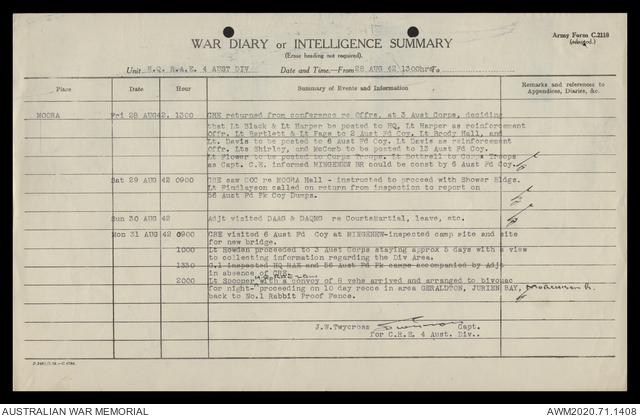 WAR DIARY or INTELLIGENCE SUMMARY
(Erase heading not required).
Army Form C.2118
Unit H.Q. R.A.E. 4 AUST DIV Date and Time—From 28 AUG 42 1300hrs To
Place Date Hour Summary of Events and Information Remarks and references to Appendices, Diaries, &c.
MOORA Fri 28 AUG 42. 1300 CRE returned from conference re Offrs. at 3 Aust Corps, deciding
that Lt Black & Lt Harper be posted to HQ, Lt Harper as reinforcement
Offr. Lt Bartlett & Lt Page to 2 Aust Fd Coy. Lt Brody Hall, and
Lt. Davis to be posted to 6 Aust Fd Coy. Lt Davis as reinforcement
Offr. Lts Shirley, and McComb to be posted to 13 Aust Fd Coy.
Lt Flower to be posted to Corps Troops. Lt Bottrell to Corps Troops
as Capt. C.E. informed MINGENEW RR could be const by 6 Aust Fd Coy.
Sat 29 AUG 42 0900 CRE saw GOC re MOORA Hall - instructed to proceed with Shower Bldgs.
Lt Findlayson called on return from inspection to report on
56 Aust Fd Pk Coy Dumps.
Sun 30 AUG 42 Adjt visited DAAG & DAQMG re CourtsMartial, leave, etc.
Mon 31 AUG 42 0900 CRE visited 6 Aust Fd Coy at MINGENEW-inspected camp site and site
for new bridge.
1000 Lt Howden proceeded to 3 Aust Corps staying approx 5 days with a view
to collecting information regarding the Div Area.
1330 G.1 inspected HQ RAE and 56 Aust Fd Pk camps accompanied by Adjt
in absence of CRE.
2000 Lt Spooner with a convoy of 8 vehs arrived and arranged to bivouac
for night- proceeding on 10 day recce in area GERALDTON, JURIEN BAY,
back to No.1 Rabbit Proof Fence.
J.W.Twycross Capt.
for C.R.E. 4 Aust. Div..
AUSTRALIAN WAR MEMORIAL AWM2020.71.1408